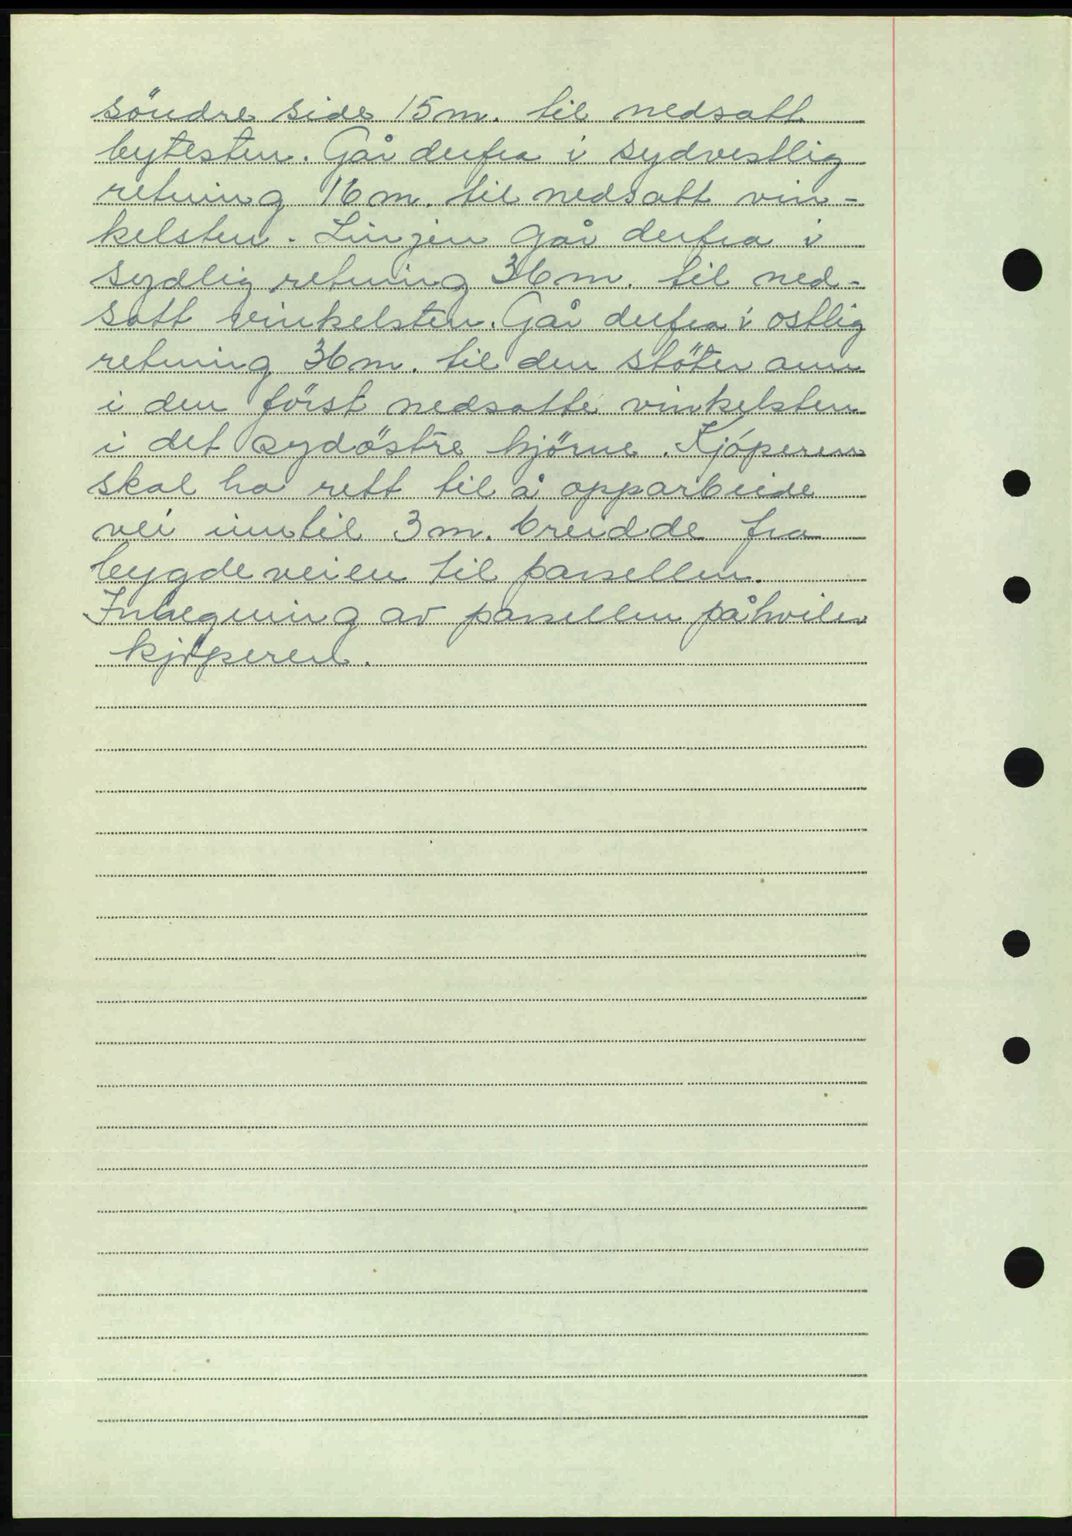 söndre side 15 m. til nedsatt
bytesten. Går derfra i sydvestlig
retning 16 m. til nedsatt vin-
kelsten. Linjen går derfra i
sydlig retning 36 m. til ned-
satt vinkelsten. Går derfra i ostlig
retning 36 m. til den stöter ann
i den först nedsatte vinkelsten
i det sydöstre hjörne. Kjöperen
skal ha rett til å opparbeide
vei inntil 3 m. breidde fra
bygdeveien til parsellen.
Inhegning av parsellen påhviler
kjöperen.